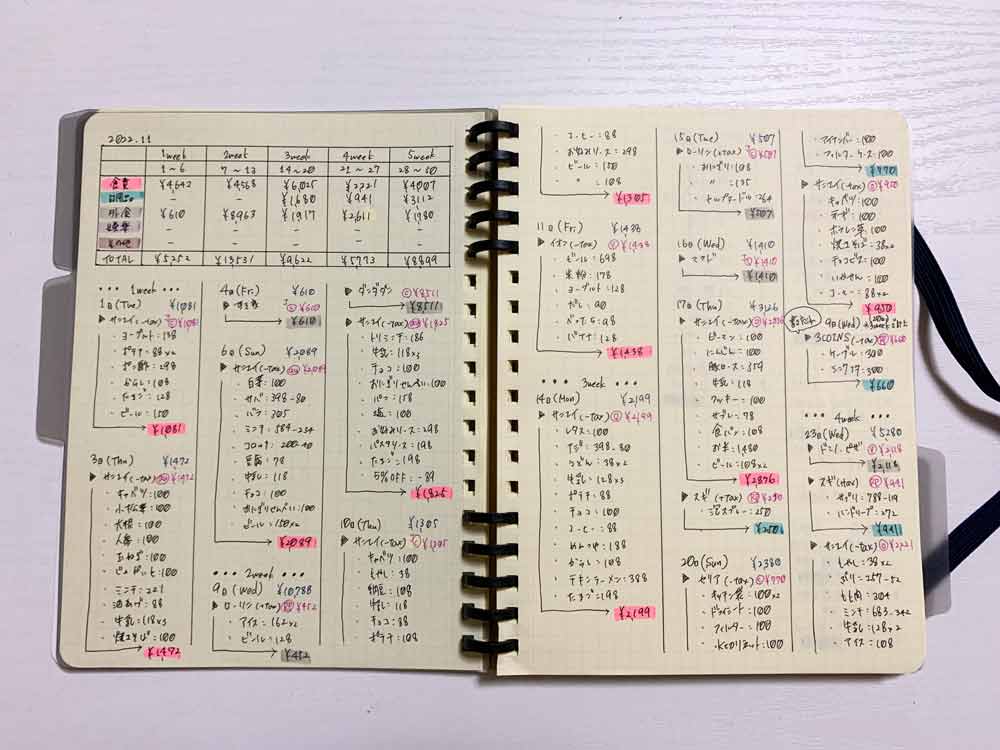 2022.11
1week 2week 3week 4week 5week
1~6 7~13 14~20 21~27 28~30
食費 ¥4642 ¥4568 ¥6025 ¥2221 ¥4007
日用品 - - ¥1680 ¥941 ¥3112
外食 ¥610 ¥8963 ¥1917 ¥2611 ¥1780
- - - - -
その他 - - - - -
TOTAL ¥5252 ¥13531 ¥9622 ¥5773 ¥8899
••• 1week •••
1日(Tue) ¥1081
▶サンエイ(-tax) ¥1081
・ヨーグルト:138
・ポテチ:88×2
・ポン酢:298
・からし:108
・たまご:128
・ビール:150
¥1081
3日(Thu) ¥1472
▶サンエイ(-tax) ¥1472
・キャベツ:100
・小松菜:100
・大根:100
・人参:100
・玉ねぎ:100
・ミンチ:221
・油あげ:88
・牛乳:118×3
・焼きそば:100
¥1472
4日(Fri) ¥610
¥610
¥610
6日(Sun) ¥2089
▶サンエイ(-tax) ¥2089
・白菜:100
・サバ:398-80
・バラ:205
・ミンチ:584-234
・コロッケ:200-40
・豆腐:78
・牛乳:118
・チョコ:100
・おにぎりせんべい:100
・ビール:150×2
¥2089
••• 2week •••
9日(Wed) ¥10788
▶ローソン(+tax) ¥452
・アイス:162×2
・ビール:128
¥452
▶ダンダダン ¥8511
¥8511
▶サンエイ(-tax) ¥1825
・トリミンチ:186
・牛乳:118×3
・チョコ:100
・おにぎりせんべい:100
・パン:158
・塩:100
・お好みソース:298
・パスタソース:198
・たまご:198
・5%OFF:-89
¥1825
10日(Thu) ¥1305
▶サンエイ(-tax) ¥1305
・キャベツ:100
・もやし:38
・納豆:108
・牛乳:118
・チョコ:88
・ポテチ:108
・コーヒー:88
・お好みソース:298
・ビール:150
・〃:108
¥1305
11日(Fri) ¥1438
▶イオン(-tax) ¥1438
・ビール:698
・米粉:178
・ヨーグルト:128
・だし:90
・バナナ:128
¥1438
••• 3week •••
14日(Mon) ¥2199
▶サンエイ(-tax) ¥2199
・レタス:100
・うどん:38×2
・牛乳:128×3
・ポテチ:88
・チョコ:100
・コーヒー:88
・めんつゆ:188
・からし:108
・チキンラーメン:388
・たまご:198
¥2199
15日(Tue) ¥507
▶ローソン(+tax) ¥507
・おにぎり:108
・〃:135
・カップヌードル:264
¥507
16日(Wed) ¥1410
▶マクド ¥1410
¥1410
17日(Thu) ¥3126
▶サンエイ(-tax) ¥2876
・ピーマン:100
・にんじん:100
・豚ロース:359
・牛乳:118
・クッキー:100
・サラダ:78
・食パン:108
・お米:1480
・ビール:108×2
¥2876
▶スギ(+tax) ¥250
・泡スプレー:250
¥250
20日(Sun) ¥2380
▶セリア(-tax) ¥770
・キッチン袋:100×2
・フィルター:100
・アイアンバー:100
・フィルターケース:100
¥770
▶サンエイ(-tax) ¥950
・キャベツ:100
・ネギ:100
・ホウレン草:100
・焼きそば:38×2
・チョコビス:100
・いもけん:100
・コーヒー:88×2
¥950
9日(Wed)
▶3COINS(-tax) ¥660
・ケーブル:300
・シリカ:300
¥660
••• 4week •••
23日(Wed) ¥5280
▶ドミノピザ ¥2118
¥2118
▶スギ(+tax) ¥941
・サプリ:788-119
・ハンドソープ:272
¥941
▶サンエイ(-tax) ¥2221
・もやし:38×2
・ぶり:257-52
・もも肉:304
・ミンチ:683-342
・牛乳:128×2
・アイス:108